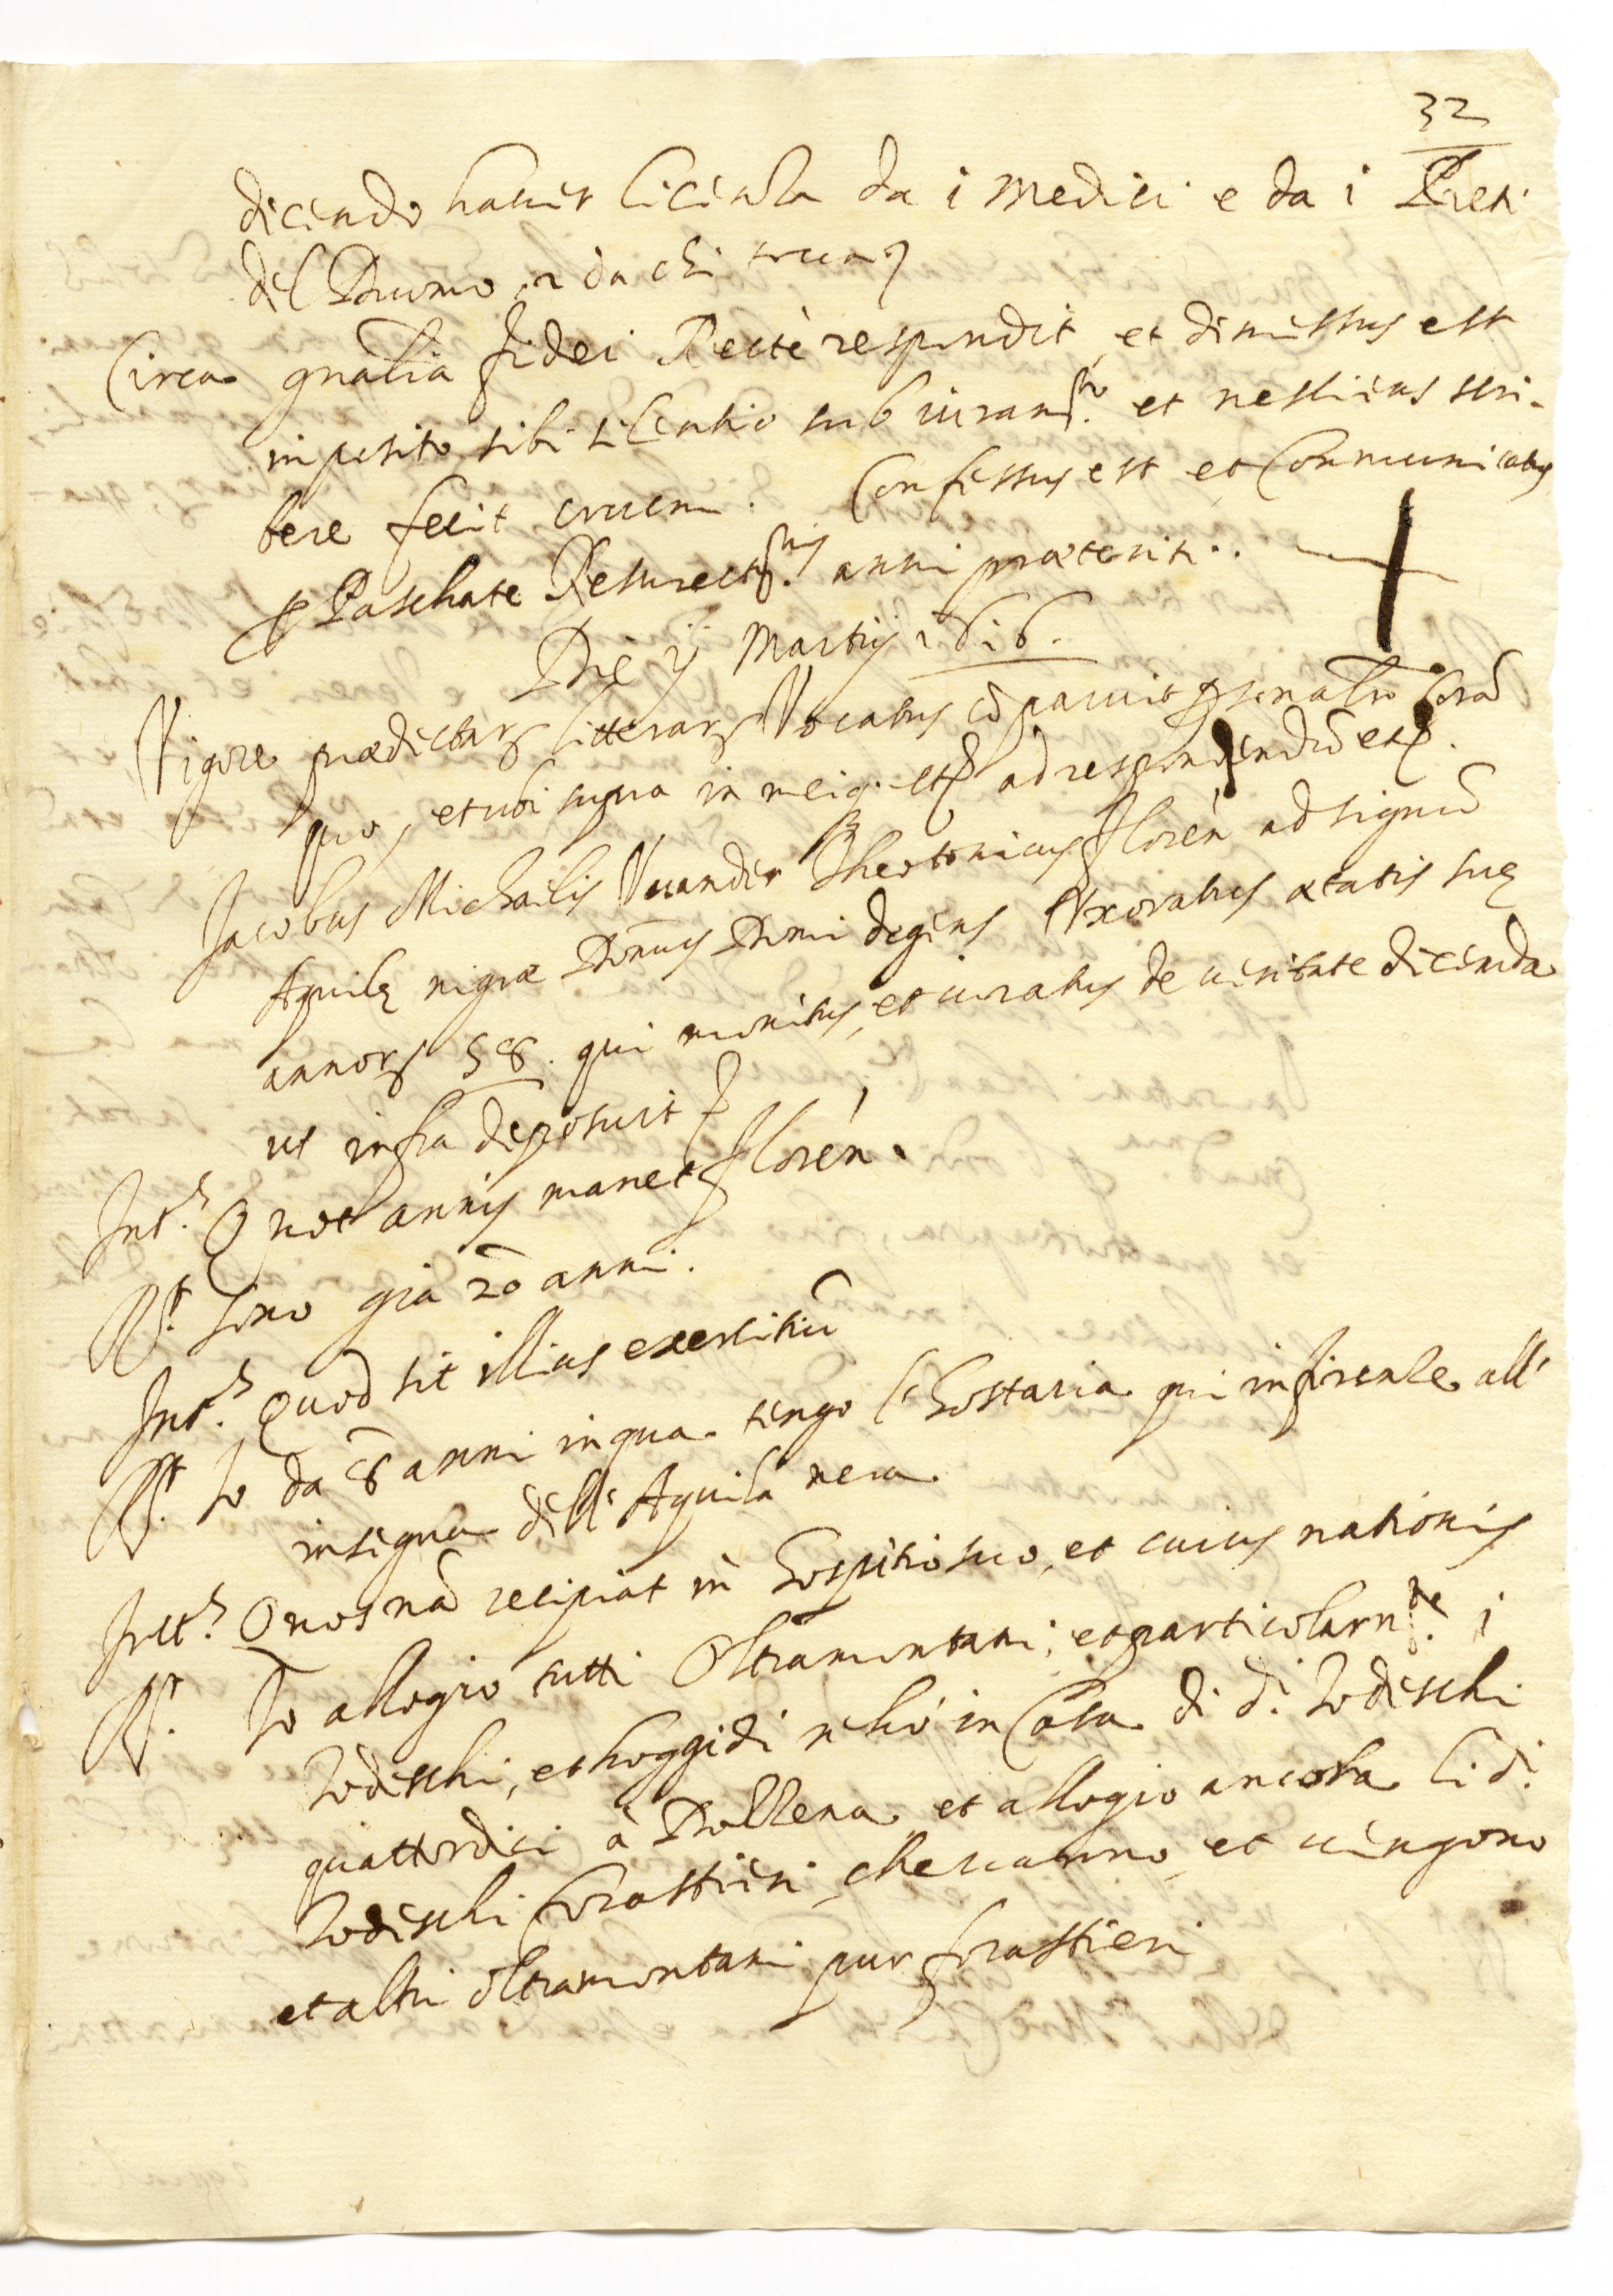 32
dicendo haver licenza da i Medici e da i Preti
del Duomo, e da chi
Circa gnalia fidei Recte respondit, et dimissus est
imposito sibi silentio sub iuramto. et nesciens scri-
bere fecit crucem. Confessus est et Communicatus
Paschate Resurectnis anni præteriti..
Die Martij 1616.
Vigore prædictar litterar Vocatus cōparuit psonalr Corā
quo, et ubi supra in meiq. etc ad respondendū etc.
Jacobus Michaelis Theotonicus Floreñ ad signū
Aquilę nigræ Domi degens Uxoratus ætatis suę
annor 58. qui monitus, et iuratus de veritate dicenda
ut infra deposuit
Ints. Quot annis manet Floreñ.
Rt. Sono gia 20 anni.
Ints. Quod sit illius exercitiū
Rt. Io da 8 anni in qua tengo l'hostaria qui in firenze all'
insegna dell'Aquila nera.
Ints. Quosnā recipiat in hospitio suo, et cuius nationis
Rt. Io allogio tutti Oltramontani, et particolarmte. i
Todeschi, et hoggidi n'hò in Casa di d.i Todeschi
quattordici à Dozzena et allogio ancora li d.i
Todeschi forastieri che vanno, et vengono
et altri oltramontani pur forastieri